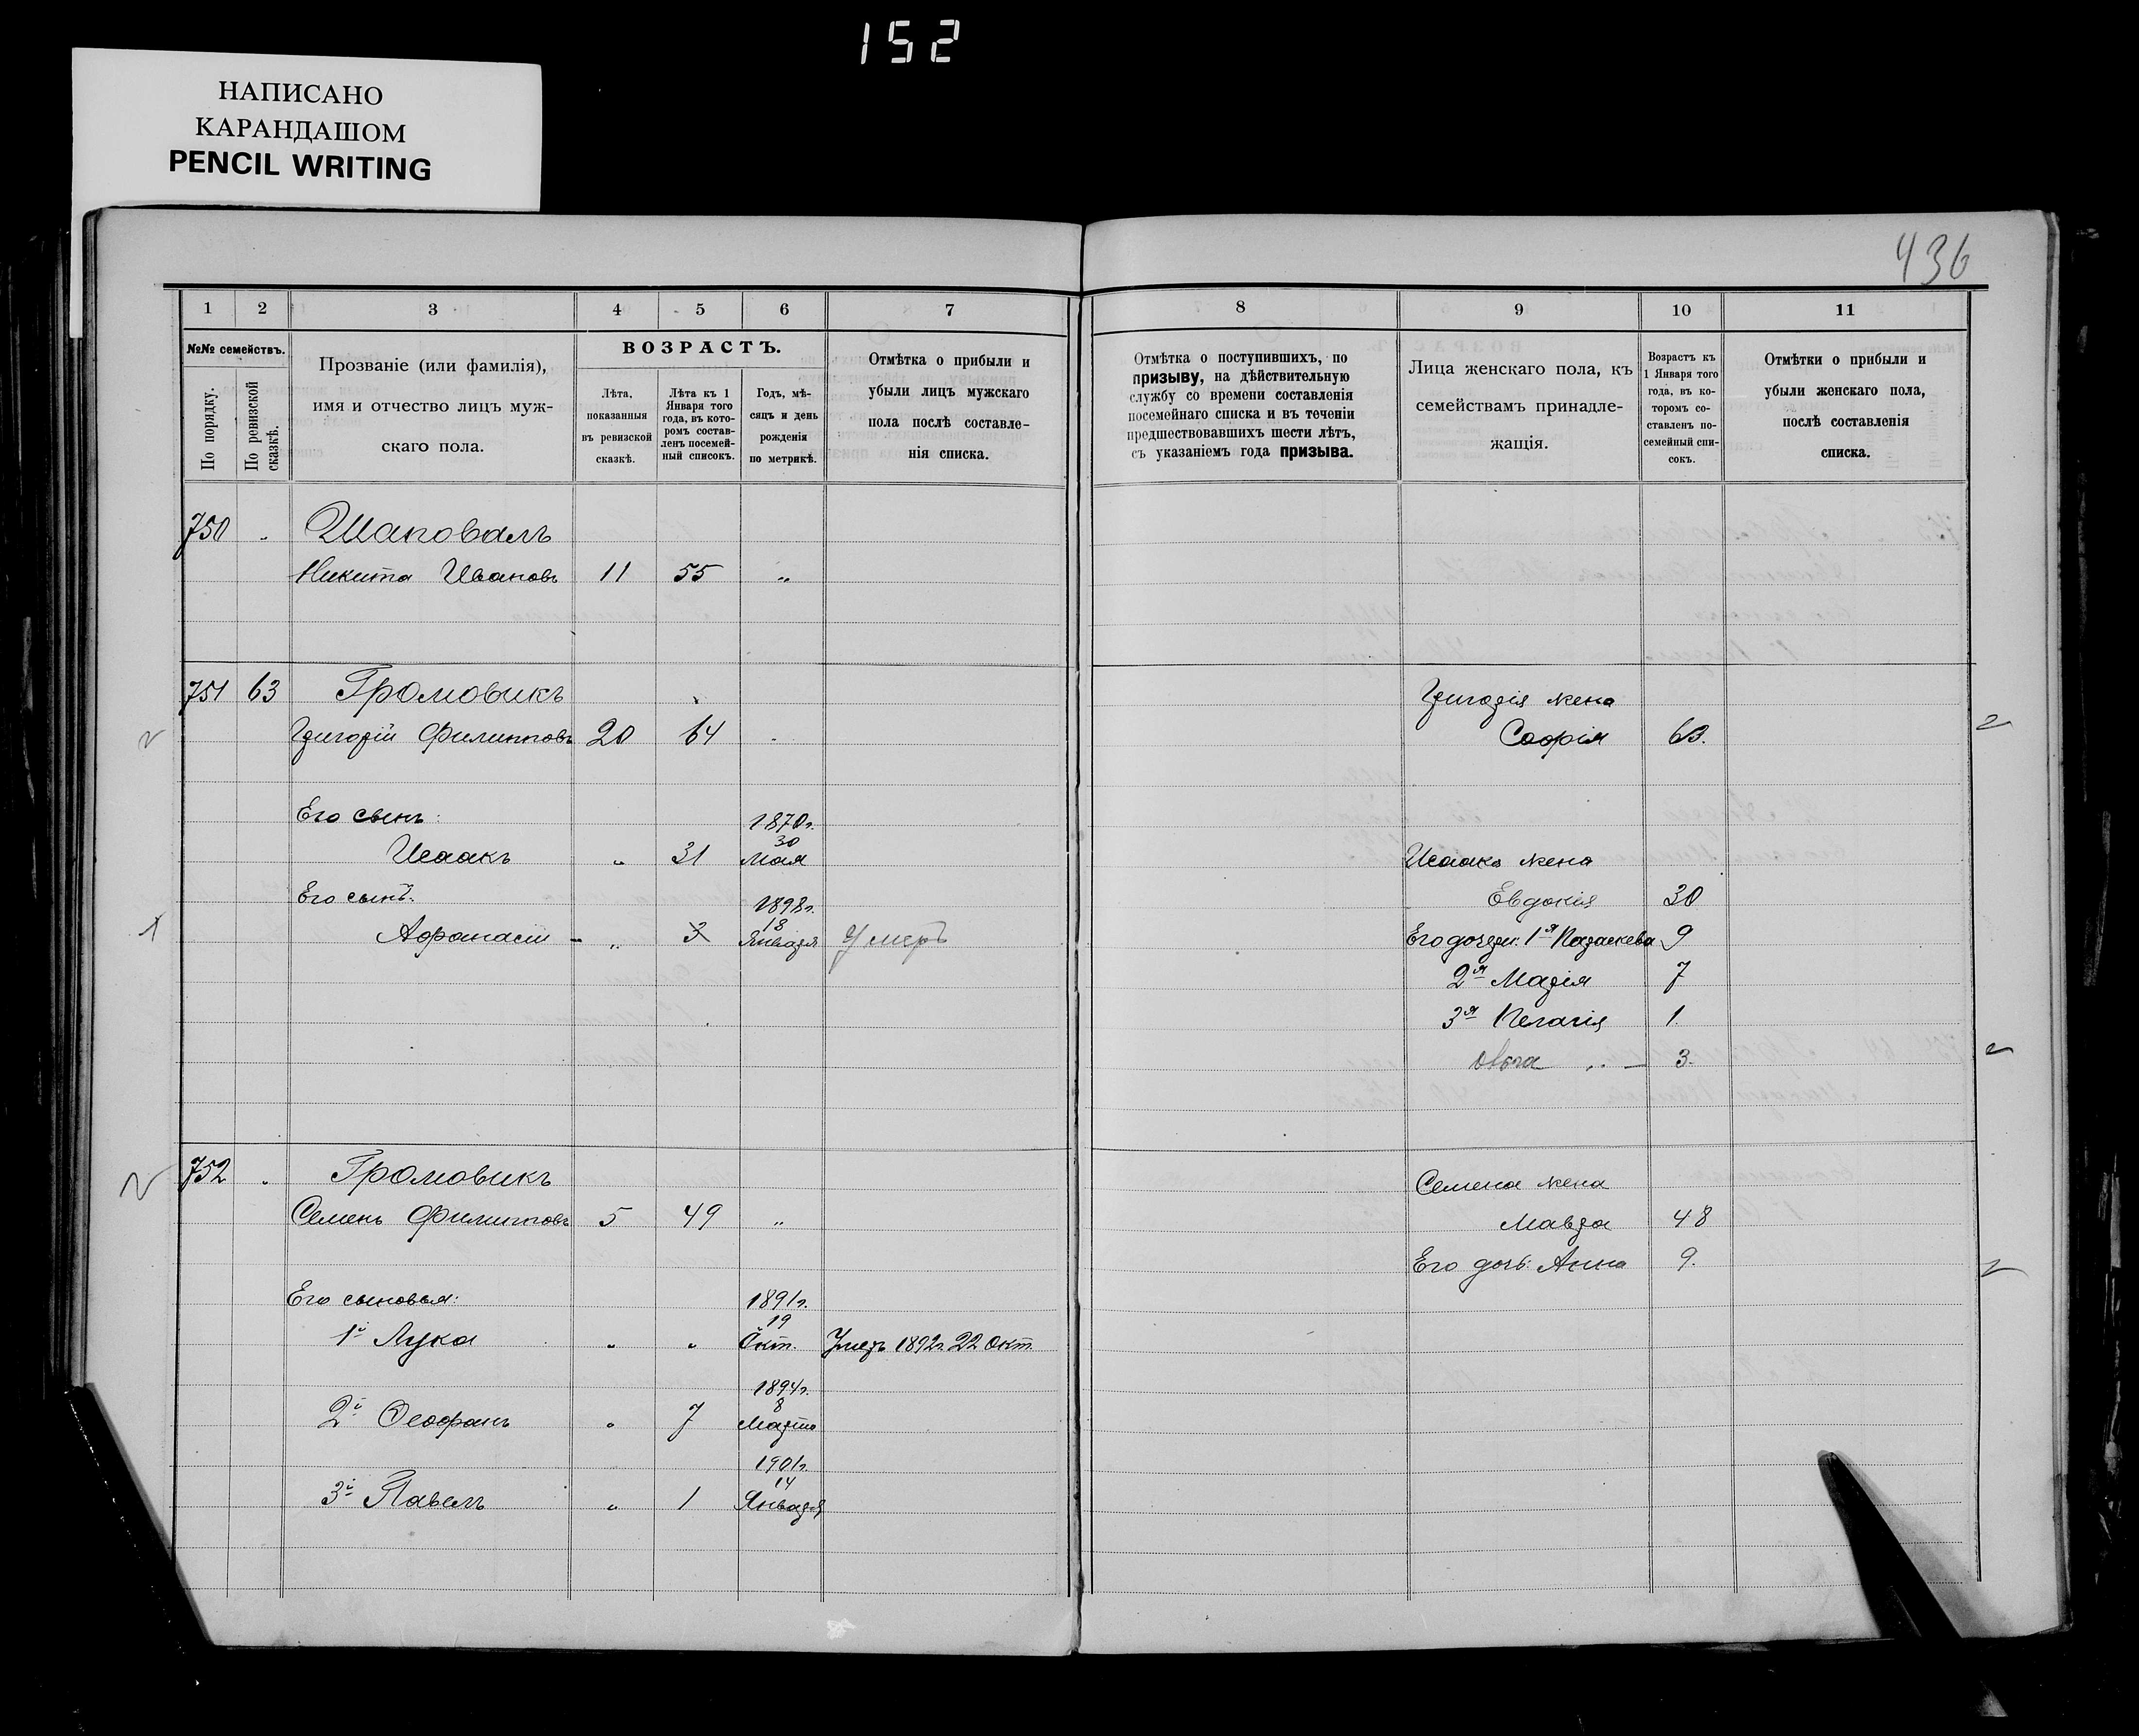 152
НАПИСАНО
КАРАНДАШОМ
PENCIL WRITING
436
1 2 3 4 5 6 7 8 9 10 11
№№ семействъ.
По порядку.
По ревизской сказкѣ.
Прозваніе (или фамилія),
имя и отчество лицъ муж-
скаго пола.
ВОЗРАСТЪ.
Лѣта,
показанныя
въ ревизской
сказкѣ.
Лѣта къ 1
Января того
года, въ кото-
ромъ состав-
ленъ посемей-
ный списокъ.
Годъ, мѣ-
сяцъ и день
рожденія
по метрикѣ.
Отмѣтка о прибыли и
убыли лицъ мужскаго
пола послѣ составле-
нія списка.
Отмѣтка о поступившихъ, по
призыву, на дѣйствительную
службу со времени составленія
посемейнаго списка и въ теченіи
предшествовавшихъ шести лѣтъ,
съ указаніемъ года призыва.
Лица женскаго пола, къ
семействамъ принадле-
жащія.
Возрастъ къ
1 Января того
года, въ ко-
торомъ со-
ставленъ по-
семейный спи-
сокъ.
Отмѣтки о прибыли и
убыли женскаго пола,
послѣ составленія
списка.
750 „ Шаповалъ
Никита Ивановъ 11 55 „
751 63 Громовикъ Григорія жена
Григорій Филипповъ 20 64 „ Софія 63.
Его сынъ: 1870г.
30
Исаакъ „ 31 Мая Исаака жена
Его сынъ: 1898г. Евдокія 30
18
Афанасій – „ 3 Января Умеръ Его дочери: 1я Параскева 9
2я Марія 7
3я Пелагія 1.
Ольга „ — 3.
752 „ Громовикъ Семена жена
Семенъ Филипповъ 5 49 „ Мавра 48
Его дочь: Анна 9.
Его сыновья: 1891г.
19
1й Лука „ „ Окт. Умеръ 1892г. 22 Окт.
1894г.
8
2й Ѳеофанъ „ 7 Марта
1901г.
14
3й Павелъ „ 1 Января